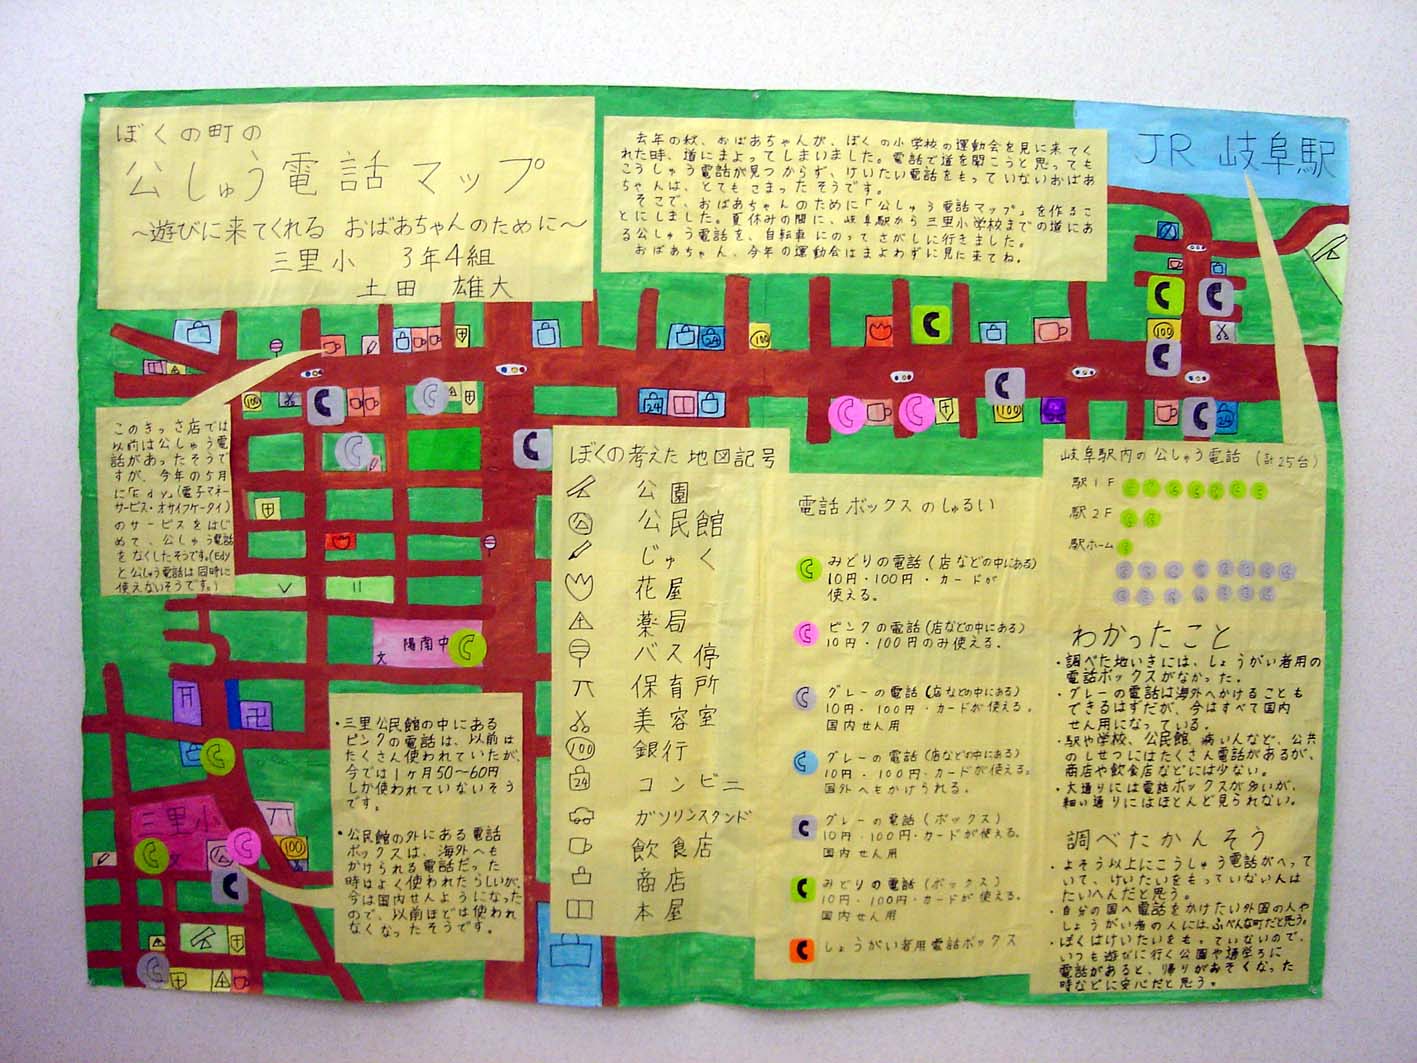 ぼくの町の
公しゅう電話マップ
～遊びに来てくれる おばあちゃんのために～
三里小 3年4組
土田 雄大
去年の秋、おばあちゃんが、ぼくの小学校の運動会を見に来てく
れた時、道にまよってしまいました。電話で道を聞こうと思っても
こうしゅう電話が見つからず、けいたい電話をもっていないおばあ
ちゃんは、とてもこまったそうです。
そこで、おばあちゃんのために「公しゅう電話マップ」を作るこ
とにしました。夏休みの間に、岐阜駅から三里小学校までの道にあ
る公しゅう電話を、自転車にのってさがしに行きました。
おばあちゃん、今年の運動会はまよわずに見に来てね。
JR 岐阜駅
このきっさ店では
以前は公しゅう電
話があったそうで
すが、今年の5月
に「Edy」(電子マネー
サービス・オサイフケータイ)
のサービスをはじ
めて、公しゅう電話
をなくしたそうです。(Edy
と公しゅう電話は同時に
使えないそうです。)
陽南中
文
三里小
文
・三里公民館の中にある
ピンクの電話は、以前は
たくさん使われていたが、
今では1ヶ月50～60円
しか使われていないそう
です。
・公民館の外にある電話
ボックスは、海外へも
かけられる電話だった
時はよく使われたらしいが、
今は国内せんようになった
ので、以前ほどは使われ
なくなったそうです。
ぼくの考えた地図記号
公園
公民館
じゅく
花屋
薬局
バス停
保育所
美容室
100 銀行
24 コンビニ
ガソリンスタンド
飲食店
商店
本屋
電話ボックスのしゅるい
みどりの電話(店などの中にある)
10円・100円・カードが
使える。
ピンクの電話(店などの中にある)
10円・100円のみ使える。
グレーの電話(店などの中にある)
10円・100円・カードが使える。
国内せん用
グレーの電話(店などの中にある)
10円・100円・カードが使える。
国外へもかけられる。
グレーの電話(ボックス)
10円・100円・カードが使える。
国内せん用
みどりの電話(ボックス)
10円・100円・カードが使える。
国内せん用
しょうがい者用電話ボックス
岐阜駅内の公しゅう電話(計25台)
駅1F
駅2F
駅ホーム
わかったこと
・調べた地いきには、しょうがい者用の
電話ボックスがなかった。
・グレーの電話は海外へかけることも
できるはずだが、今はすべて国内
せん用になっている。
・駅や学校、公民館、病いんなど、公共
のしせつにはたくさん電話があるが、
商店や飲食店などには少ない。
・大通りには電話ボックスが多いが、
細い通りにはほとんど見られない。
調べたかんそう
・よそう以上にこうしゅう電話がへって
いて、けいたいをもっていない人は
たいへんだと思う。
・自分の国へ電話をかけたい外国の人や
しょうがい者の人にはふべんな町だと思う。
・ぼくはけいたいをもっていないので、
いつも遊びに行く公園や通学ろに
電話があると、帰りがおそくなった
時などに安心だと思う。